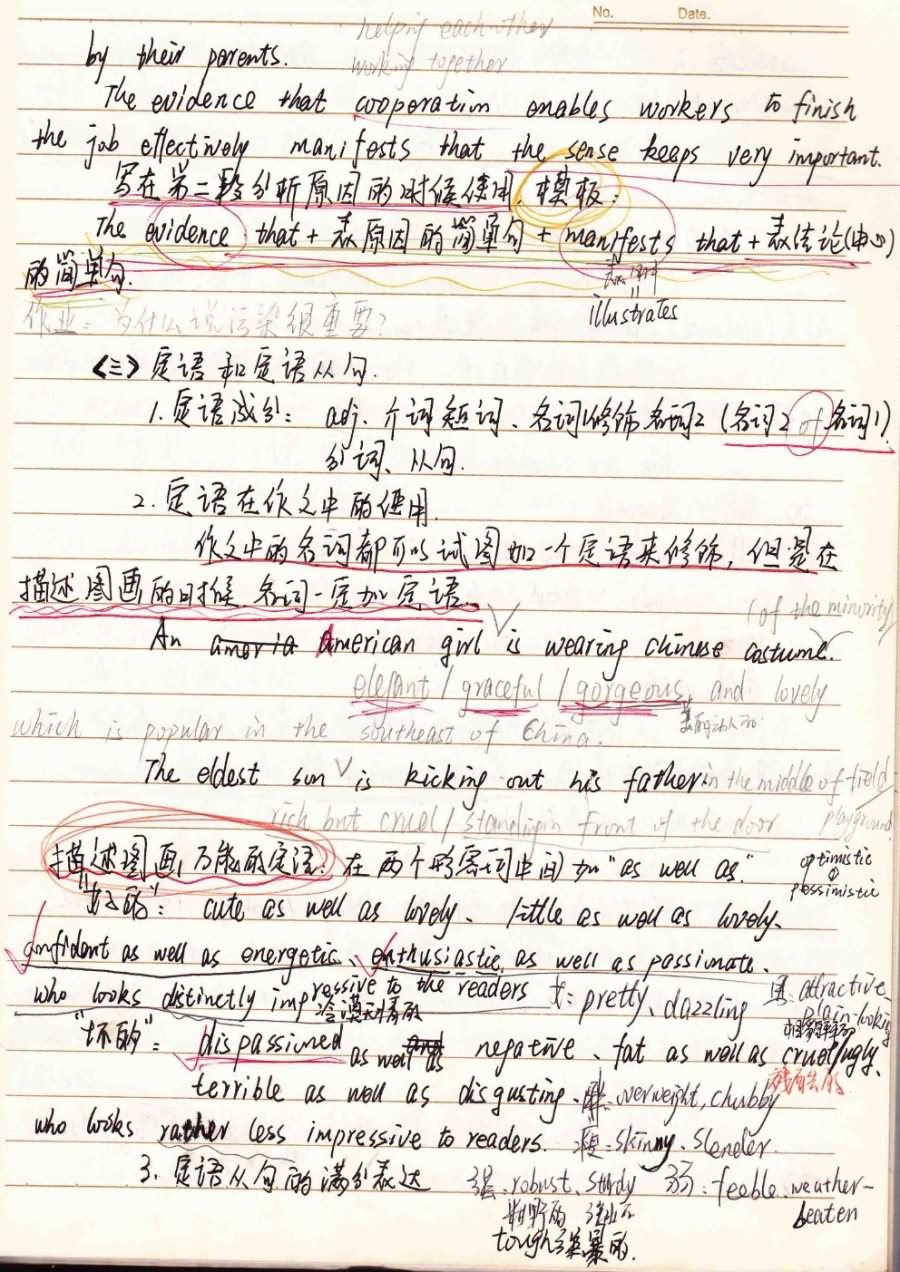 No. Date.
helping each other
by their parents. working together
The evidence that cooperation enables workers to finish
the job effectively manifests that the sense keeps very important.
写在第二段分析原因的时候使用. 模板:
The evidence that + 表原因的简单句 + manifests that + 表结论(中心)
的简单句.
illustrates
作业: 为什么说污染很重要?
<三> 定语和定语从句.
1. 定语成分: adj. 介词短词、名词1修饰名词2 (名词2 of 名词1)
分词、从句.
2. 定语在作文中的使用.
作文中的名词都可以试图加一个定语来修饰, 但是在
描述图画的时候, 名词一定加定语.
(of the minority
An american girl is wearing chinese costume.
elegant / graceful / gorgeous, and lovely
美丽动人的
which is popular in the southeast of China.
The eldest son is kicking out his father in the middle of field
rich but cruel / standing in front of the door playground
描述图画, 万能的定语: 在两个形容词中间加 "as well as" optimistic
pessimistic
"好的": cute as well as lovely、 little as well as lovely、
confident as well as energetic、 enthusiastic as well as passionate、
who looks distinctly impressive to the readers 女: pretty、dazzling 男: attractive
冷漠无情的 plain-looking
"坏的": dispassioned as well as negative、 fat as well as cruel/ugly、
残酷的
terrible as well as disgusting、 胖: overweight, chubby
who looks rather less impressive to readers. 瘦: skinny、slender.
3. 定语从句的满分表达 强: robust、sturdy 弱: feeble weather-
beaten
粗野的
tough 强暴的.